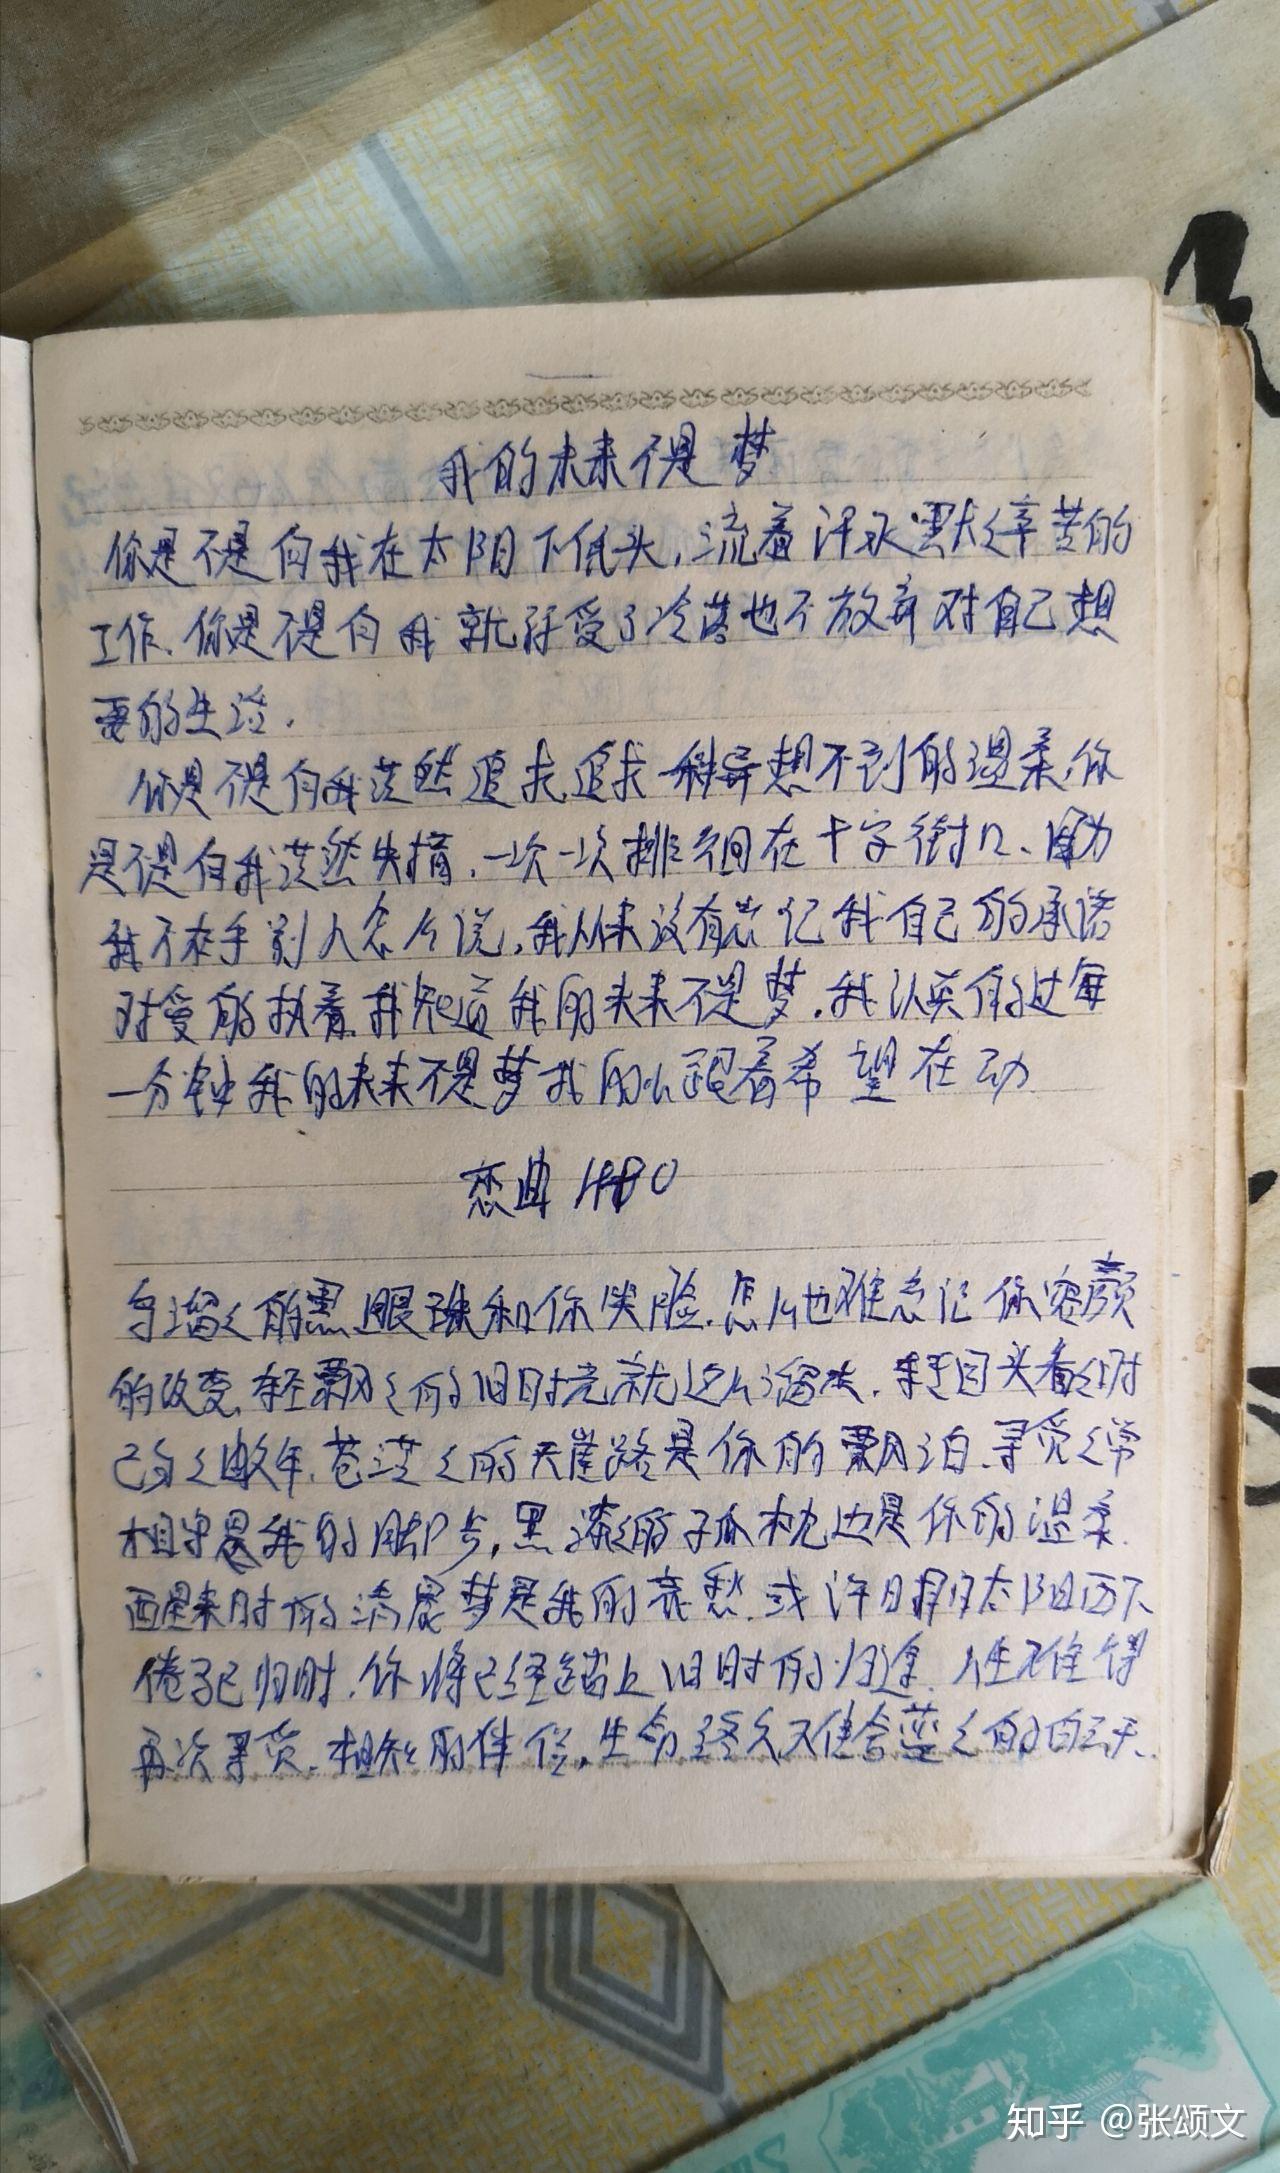 我的未来不是梦
你是不是向我在太阳下低头,流着汗水默々辛苦的
工作、你是不是向我就算受了冷落也不放弃对自己想
要的生活.
你是不是向我茫然追求追求一种异想不到的温柔,你
是不是向我茫然失措,一次一次排徊在十字街口、因为
我不在乎别人怎么说,我从来没有忘记我自己的承诺
对爱的执着,我知道我的未来不是梦.我认真的过每
一分钟我的未来不是梦我的心跟着希望在动
恋曲 1980
溜々的黑眼珠和你笑脸.怎么也难忘记你容颜
的改变.轻飘々的旧时光就这么溜失.回头看々时
已年.苍茫々的天崖路是你的飘泊.寻觅々常
相守是我的脚步,黑漆々的孤枕边是你的温柔.
醒来时的清晨梦是我的哀愁.或许明日太阳西下
倦鸟已归时.你将已经踏上旧时的归途.人生难得
再次寻觅.相知的伴侣,生命终久难舍蓝々的白云天.
知乎 @张颂文